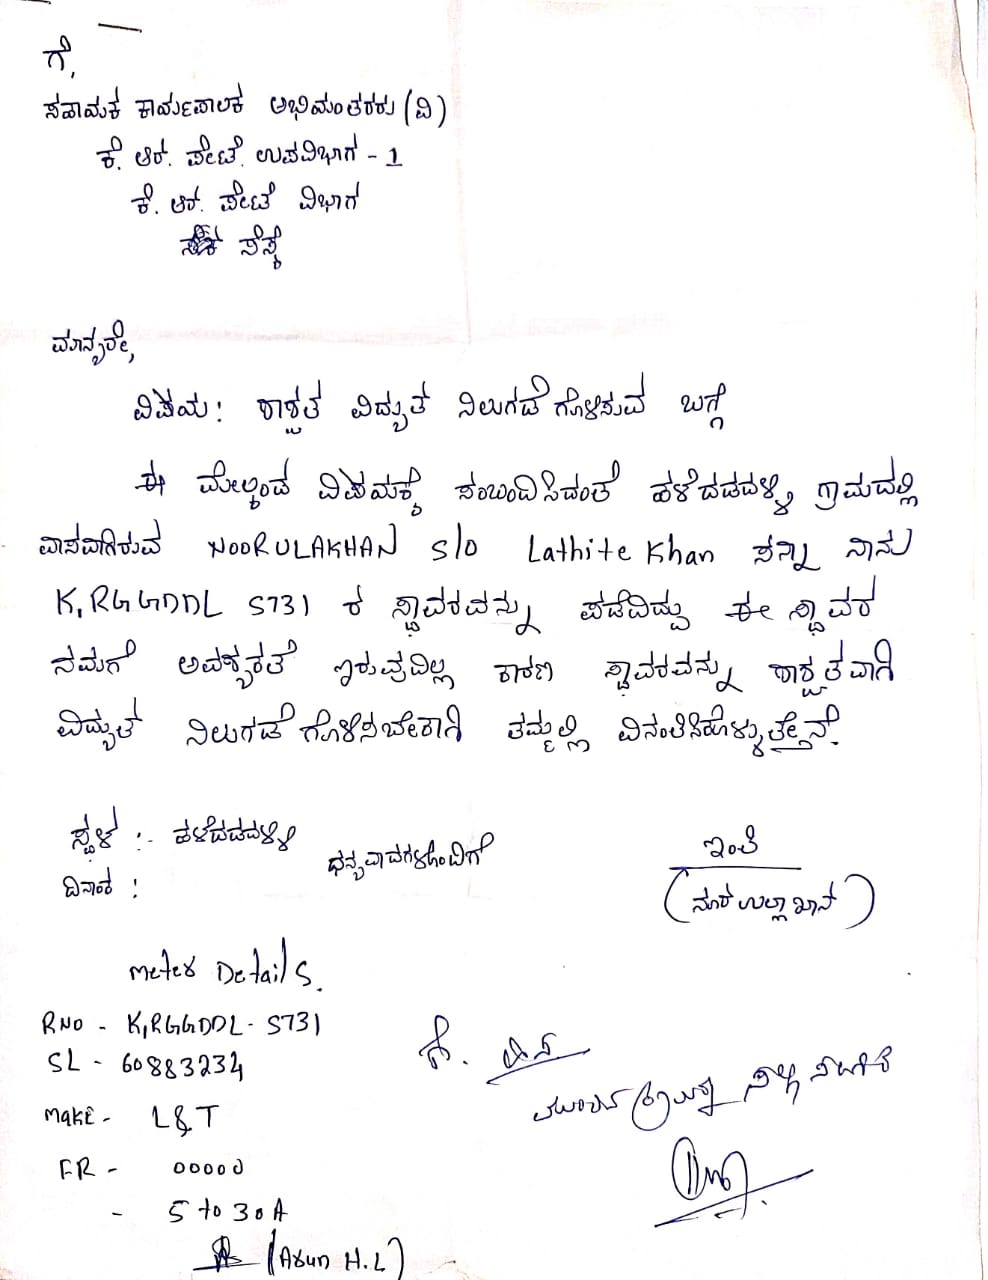 ಗೆ,
ಸಹಾಯಕ ಕಾರ್ಯಪಾಲಕ ಅಭಿಯಂತರರು (ವಿ)
ಕೆ. ಆರ್. ಪೇಟೆ. ಉಪವಿಭಾಗ - 1
ಕೆ. ಆರ್. ಪೇಟೆ ವಿಭಾಗ
ಸೆಸ್ಕ್
ಮಾನ್ಯರೇ,
ವಿಷಯ: ಶಾಶ್ವತ ವಿದ್ಯುತ್ ನಿಲುಗಡೆಗೊಳಿಸುವ ಬಗ್ಗೆ
ಈ ಮೇಲ್ಕಂಡ ವಿಷಯಕ್ಕೆ ಸಂಬಂದಿಸಿದಂತೆ ಹಳೆದಡದಹಳ್ಳಿ ಗ್ರಾಮದಲ್ಲಿ
ವಾಸವಾಗಿರುವ NOORULAKHAN S/o Lathite Khan ನಾನು
K,RGGDDL S731 ರ ಸ್ಥಾವರವನ್ನು ಪಡೆದಿದ್ದು ಈ ಸ್ಥಾವರ
ನಮಗೆ ಅವಶ್ಯಕತೆ ಇರುವುದಿಲ್ಲ ಕಾರಣ ಸ್ಥಾವರವನ್ನು ಶಾಶ್ವತವಾಗಿ
ವಿದ್ಯುತ್ ನಿಲುಗಡೆಗೊಳಿಸಬೇಕಾಗಿ ತಮ್ಮಲ್ಲಿ ವಿನಂತಿಸಿಕೊಳ್ಳುತ್ತೇನೆ.
ಸ್ಥಳ :-
ಧನ್ಯವಾದಗಳೊಂದಿಗೆ
ಇಂತಿ
ದಿನಾಂಕ :
(ನೂರ್ ಉಲ್ಲಾ ಖಾನ್)
Meter Details.
RNO - K,RGGDDL- S731
SL - 60883234
Make - L&T
FR - 00000
- 5 to 30A
(Arun H.L)